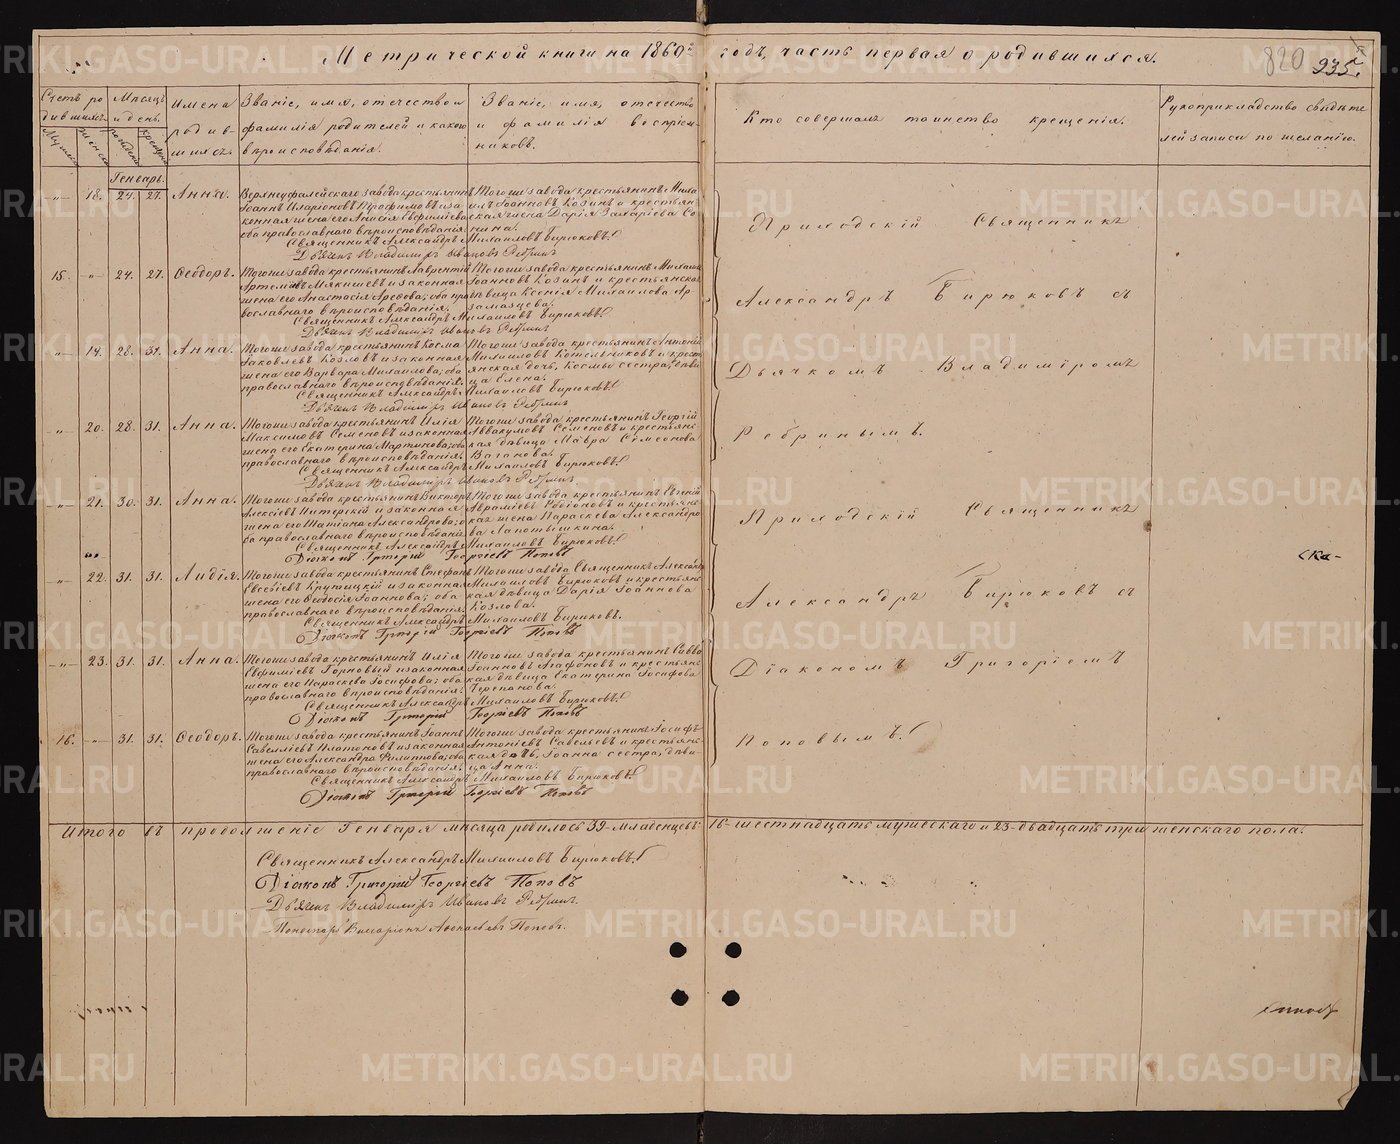 Метрической книги на 1860й годъ, часть первая о родившихся.
820
935.
Счетъ родившихся.
Мужеска
Женска
Мѣсяцъ и день.
рожденія
крещенія
Имена родившихъ.
Званіе, имя, отечество и фамилія родителей и какого вѣроисповѣданія.
Званіе, имя, отечество и фамилія воспріемниковъ.
Кто совершалъ таинство крещенія.
Рукоприкладство свидѣтелей записи по желанію.
Генварь.
-„- 18. 24. 27. Анна.
Верхнеуфалейскаго завода крестьянинъ
Іоаннъ Иларіоновъ Трофимовъ и за
конная жена его Анисія Евфиміева
оба православнаго вѣроисповѣданія.
Тогоже завода крестьянинъ Миха
илъ Іоанновъ Козинъ и крестьян
ская жена Дарія Захаріева Со
нина.
Священникъ Александръ Михаиловъ Бирюковъ.
Дьячекъ Владимиръ Ивановъ Ребринъ
15. -„- 24. 27. Ѳеодоръ.
Тогоже завода крестьянинъ Лаврентій
Артемьевъ Мякишевъ и законная
жена его Анастасія Арефова; оба пра
вославнаго вѣроисповѣданія.
Тогоже завода крестьянинъ Михаилъ
Іоанновъ Козинъ и крестьянская
дѣвица Ксенія Михаилова Ар
замазцева.
Священникъ Александръ Михаиловъ Бирюковъ.
Дьячекъ Владимиръ Ивановъ Ребринъ
-„- 19. 28. 31. Анна.
Тогоже завода крестьянинъ Косма
Іаковлевъ Козловъ и законная
жена его Варвара Михаилова; оба
православнаго вѣроисповѣданія.
Тогоже завода крестьянинъ Антоній
Михаиловъ Котельниковъ и крестъ
янская дочь, Космы сестра, дѣви
ца Елена.
Священникъ Александръ Михаиловъ Бирюковъ.
Дьячекъ Владимиръ Ивановъ Ребринъ
-„- 20. 28. 31. Анна.
Тогоже завода крестьянинъ Илія
Максимовъ Семеновъ и законная
жена его Екатерина Мартинова; оба
православнаго вѣроисповѣданія.
Тогоже завода крестьянинъ Георгій
Аввакумовъ Семеновъ и крестьянс
кая дѣвица Мавра Симеонова
Ваганова.
Священникъ Александръ Михаиловъ Бирюковъ.
Дьячекъ Владимиръ Ивановъ Ребринъ
-„- 21. 30. 31. Анна.
Тогоже завода крестьянинъ Викторъ
Алексіевъ Питерскій и законная
жена его Татіана Александрова; о
ба православнаго вѣроисповѣданія
Тогоже завода крестьянинъ Евгеній
Авраміевъ Родіоновъ и крестьянс
кая жена Параскева Александро
ва Лапотышкина.
Священникъ Александръ Михаиловъ Бирюковъ.
Діаконъ Григорій Георгіевъ Поповъ
-„- 22. 31. 31. Лидія.
Тогоже завода крестьянинъ Стефанъ
Евсевіевъ Крутицкій и законная
жена его Ѳеодосія Іоаннова; оба
православнаго вѣроисповѣданія.
Тогоже завода Священникъ Александръ
Михаиловъ Бирюковъ и крестьянс
кая дѣвица Дарія Іоаннова
Козлова.
Священникъ Александръ Михаиловъ Бирюковъ.
Діаконъ Григорій Георгіевъ Поповъ
-„- 23. 31. 31. Анна.
Тогоже завода крестьянинъ Илія
Евфиміевъ Горновый и законная
жена его Параскева Іосифова; оба
православнаго вѣроисповѣданія.
Тогоже завода крестьянинъ Савва
Іоанновъ Агафоновъ и крестьянс
кая дѣвица Екатерина Іосифова
Черепанова.
Священникъ Александръ Михаиловъ Бирюковъ.
Діаконъ Григорій Георгіевъ Поповъ
16. -„- 31. 31. Ѳеодоръ.
Тогоже завода крестьянинъ Іоаннъ
Савелліевъ Платоновъ и законная
жена его Александра Филиппова; оба
православнаго вѣроисповѣданія.
Тогоже завода крестьянинъ Іосифъ
Антоніевъ Савельевъ и крестьянс
кая дочь, Іоанна сестра, дѣви
ца Анна.
Священникъ Александръ Михаиловъ Бирюковъ.
Діаконъ Григорій Георгіевъ Поповъ
Приходскій Священникъ
Александръ Бирюковъ съ
Дьячкомъ Владиміромъ
Ребринымъ.
Приходскій Священникъ
Александръ Бирюковъ съ
Діакономъ Григоріемъ
Поповымъ.
ска-
Итого въ продолженіе Генваря мѣсяца родилось 39-младенцевъ: 16-шестнадцать мужескаго и 23-двадцать три женскаго пола.
Священникъ Александръ Михаиловъ Бирюковъ.
Діаконъ Григорій Георгіевъ Поповъ
Дьячекъ Владимиръ Ивановъ Ребринъ.
Пономарь Виссаріонъ Поповъ.
METRIKI.GASO-URAL.RU